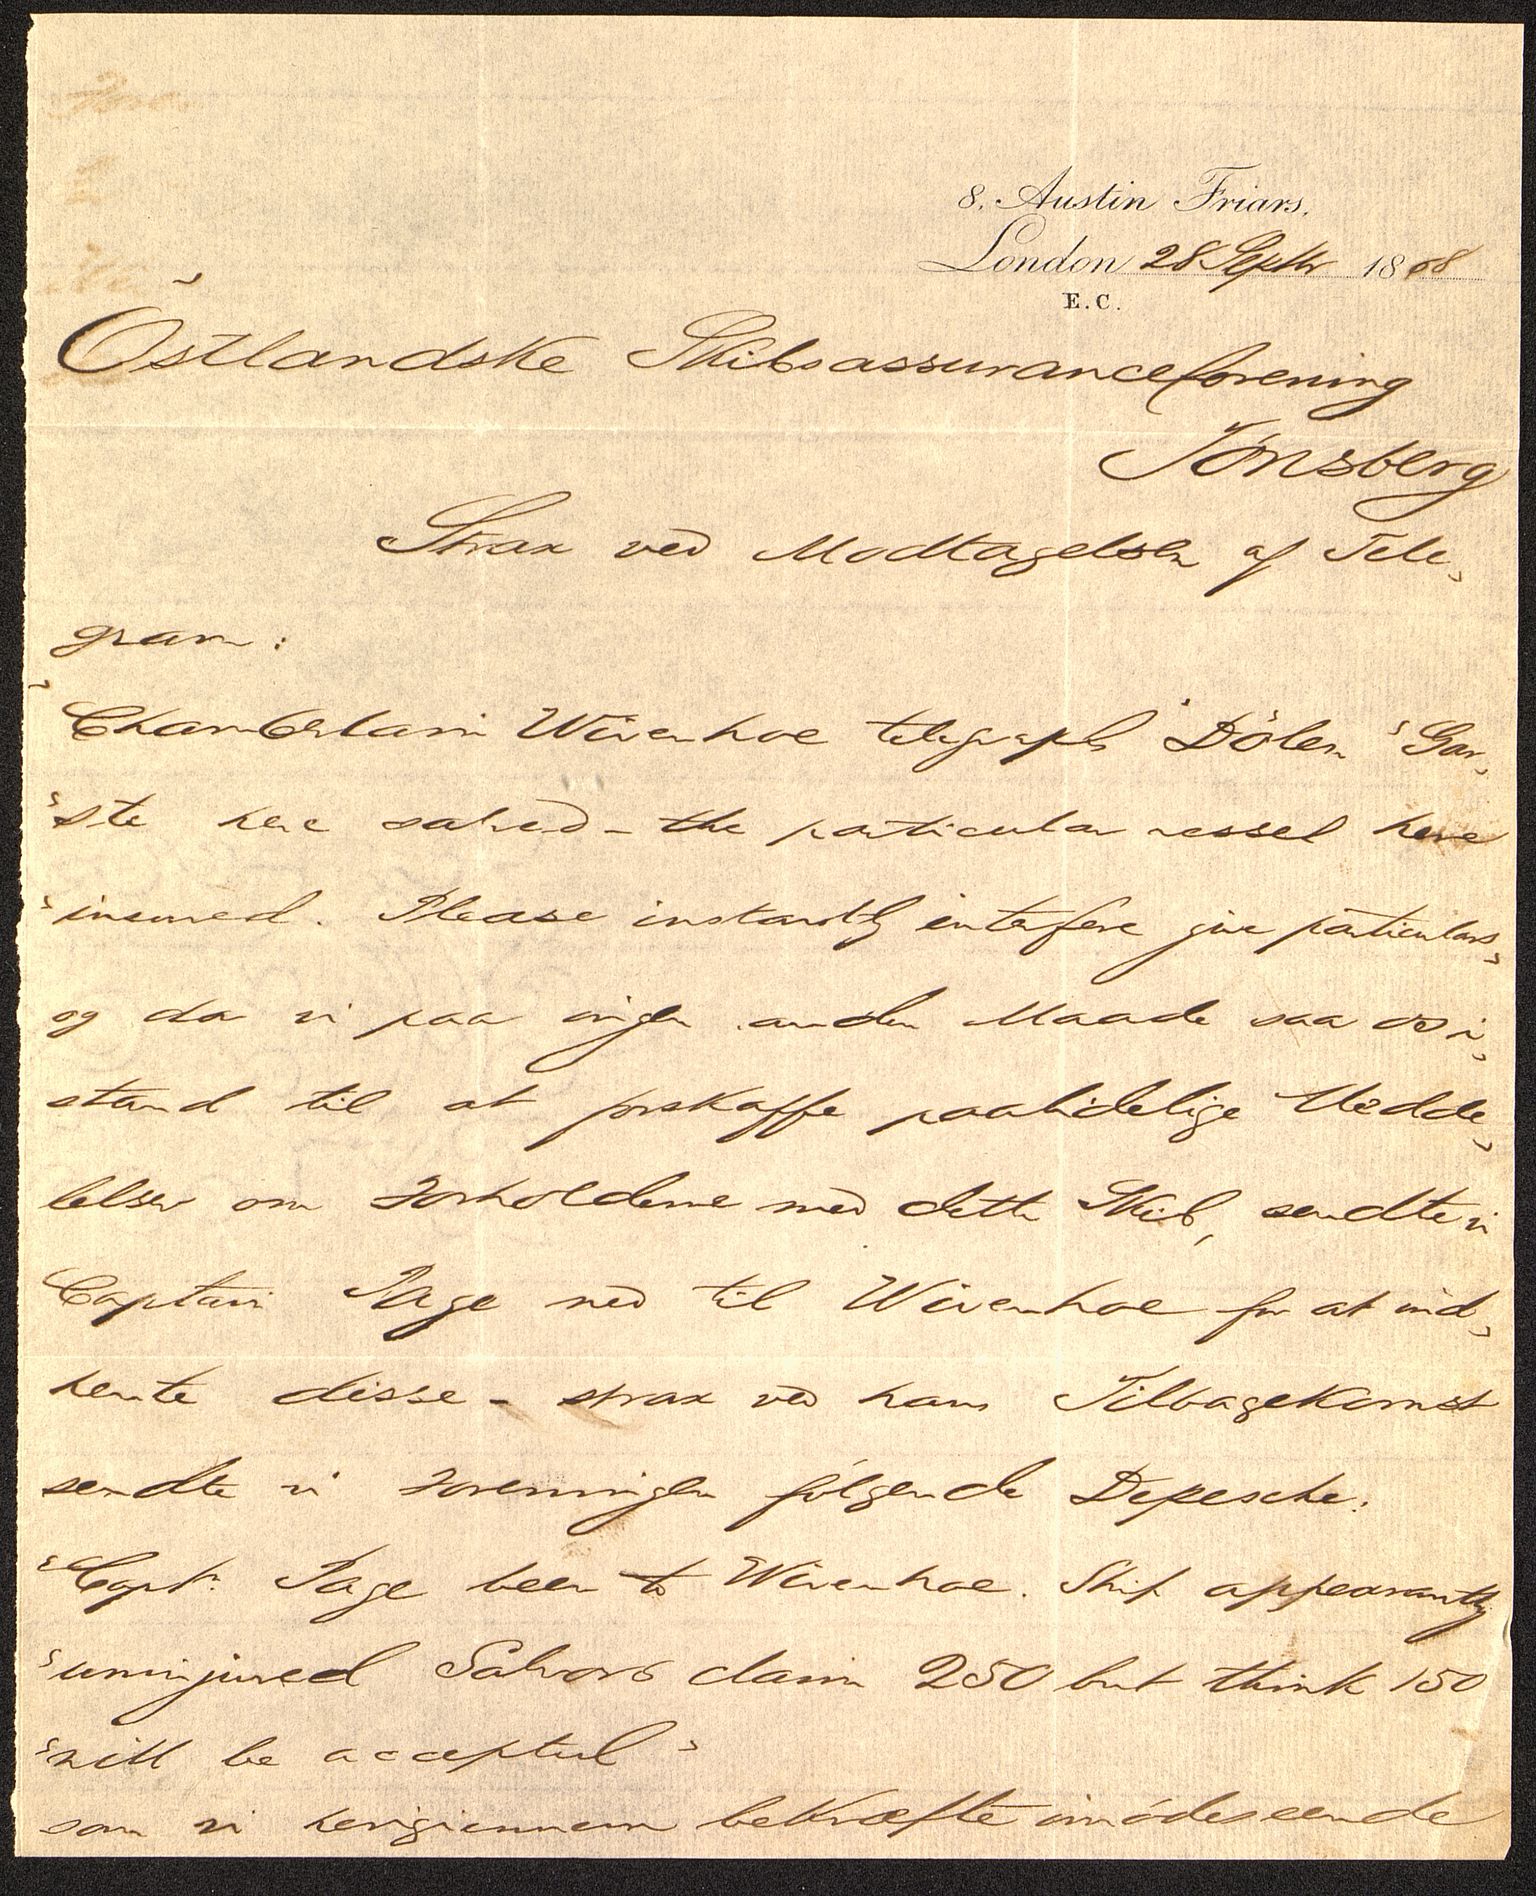 8. Austin Friars,
London 28 Septbr 1868
E.C.
Östlandske Skibsassuranceforening
Tönsberg
Strax ved Modtagelsen af Tele,
gram:
"Chamberlain Wivenhoe telegraphs "Dölen" Gar,
"ste here salved - the particular vessel here
"insured. Please instantly interfere give particulars"
og da vi paa ingen anden Maade saa os i,
stand til at forskaffe paalidelige Medde,
lelser om Forholdene med dette Skib, sendte vi
Captain Page ned til Wivenhoe for at ind,
hente disse - strax ved hans Tilbagekomst
sendte vi Foreningen følgende Depesche:
"Captn. Page been to Wivenhoe. Ship appearantly
"uninjured Salvors claim 250 but think 150
"will be accepted"
som vi herigiennem bekræfte imødeseende